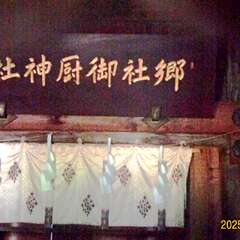 郷社御厨神社
2025